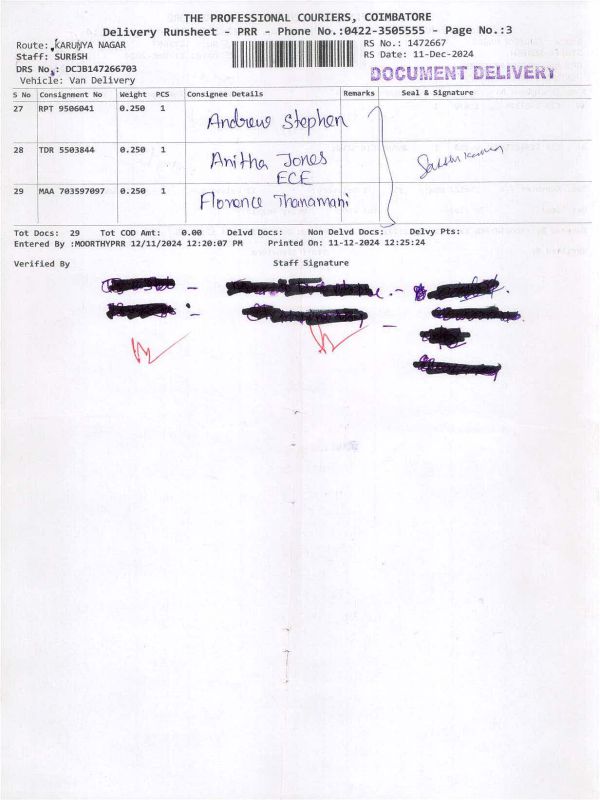 THE PROFESSIONAL COURIERS, COIMBATORE
Delivery Runsheet - PRR - Phone No.:0422-3505555 - Page No.:3
Route: KARUNYA NAGAR RS No.: 1472667
Staff: SURESH RS Date: 11-Dec-2024
DRS No.: DCJB147266703 DOCUMENT DELIVERY
Vehicle: Van Delivery
S No Consignment No Weight PCS Consignee Details Remarks Seal & Signature
27 RPT 9506041 0.250 1 Andrew Stephen
28 TDR 5503844 0.250 1 Anitha Jones
ECE
29 MAA 703597097 0.250 1 Florence Thanamani
Tot Docs: 29 Tot COD Amt: 0.00 Delvd Docs: Non Delvd Docs: Delvy Pts:
Entered By :MOORTHYPRR 12/11/2024 12:20:07 PM Printed On: 11-12-2024 12:25:24
Verified By Staff Signature